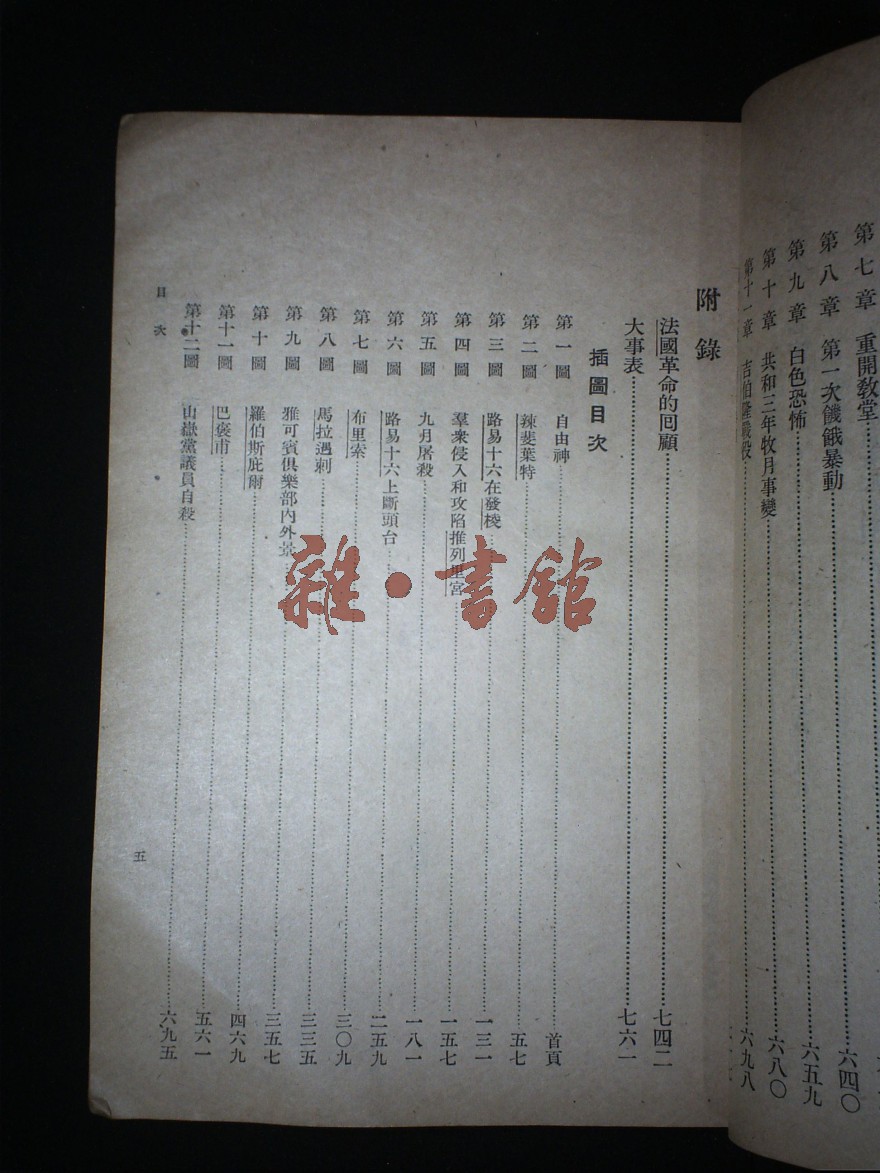 第七章 重開教堂
第八章 第一次饑餓暴動……六四〇
第九章 白色恐怖……六五九
第十章 共和三年牧月事變……六八〇
第十一章 吉伯隆戰役……六九八
附錄
法國革命的囘顧……七四二
大事表……七六一
插圖目次
第一圖 自由神……首頁
第二圖 辣斐葉特……五七
第三圖 路易十六在發棱……一三一
第四圖 羣衆侵入和攻陷推列里宮……一五七
第五圖 九月屠殺……一八一
第六圖 路易十六上斷頭台……二五九
第七圖 布里索……三〇九
第八圖 馬拉遇刺……三三五
第九圖 雅可賓俱樂部內外景……三五七
第十圖 羅伯斯庇爾……四六九
第十一圖 巴褒甫……五六一
第十二圖 山嶽黨議員自殺……六九五
目次
五
雜·書館